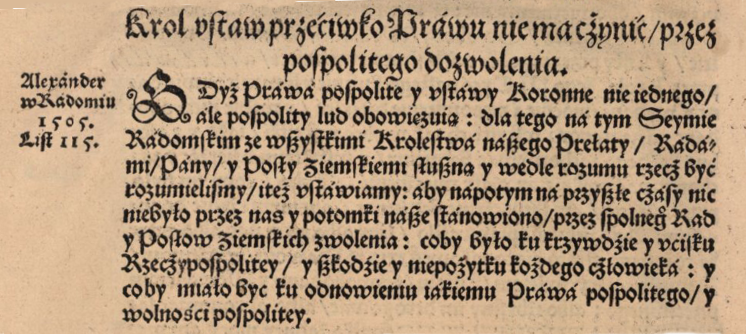 Krol vſtaw przećiwko Práwu nie ma cżynić/ przez
poſpolitego dozwolenia.
Alexánder
w Rádomiu
1505.
Liſt 115.
GDyż Práwá poſpolite y vſtáwy Koronne nie iednego/
ále poſpolity lud obowięzuią : dla tego ná tym Seymie
Rádomſkim ze wßyſtkimi Kroleſtwá náßego Prełaty/ Rádá-
mi/ Pány/ y Poſły Ziemſkiemi słußną y wedle rozumu rzecż być
rozumieliſmy/ iteż vſtáwiamy: áby nápotym ná przyßłe cżáſy nic
niebyło przez nas y potomki náße ſtánowiono/ przez ſpolneg̃ Rad
y Poſłow Ziemſkich zwolenia : coby było ku krzywdźie y vćiſku
Rzecżypoſpolitey/ y ßkodźie y niepożytku kożdego cżłowieká : y
coby miáło być ku odnowieniu iákiemu Práwá poſpolitego/ y
wolnośći poſpolitey.